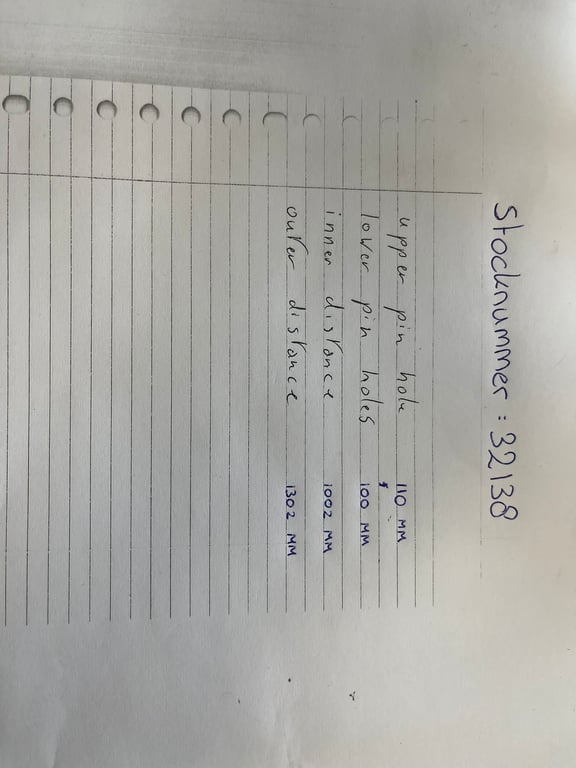 Stocknummer : 32138
upper pin hole 110 MM
lower pin holes 100 MM
inner distance 1002 MM
outer distance 1302 MM